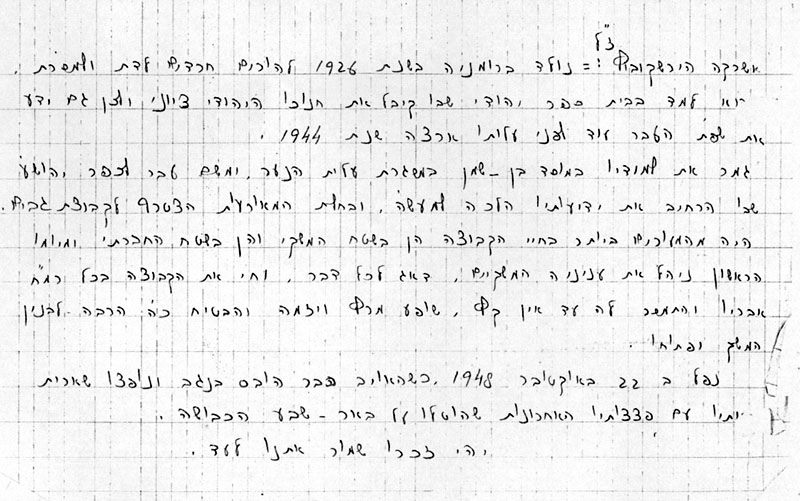 ז"ל
אשרקה הירשקוביץ := נולד ברומניה בשנת 1926 להורים חרדים לדת ולמסרת.
הוא למד בבית ספר יהודי שבו קיבל את חנוכו היהודי ציוני ולכן גם ידע
את שפת העבר עוד לפני עלותו ארצה שנת 1944.
גמר את למודיו במוסד בן-שמן במסגרת עלית הנוער, ומשם עבר לכפר יהושע
שבו הרחיב את ידיעותיו הלכה למעשה, ובחלת המאורעות הצטרף לקבוצת גבים.
היה מהמעורים ביותר בחיי הקבוצה הן בשטח המשקי והן בשטח החברתי ומיומו
הראשון ניהל את עניניה המשקיים, דאג לכל דבר, וחי את הקבוצה בכל רמ"ח
אבריו והתמסר לה עד אין קץ, שופע מרץ ויזמה והבטיח כ"ה הרבה לבנין
המשק ופתוחו.
נפל ב 22 באוקטובר 1948, כשהאויב כבר הובס בנגב ונופצו שארית
יותיו עם פצצותיו האחרונות שהוטלו על באר-שבע הכבושה.
יהי זכרו שמור אתנו לעד.